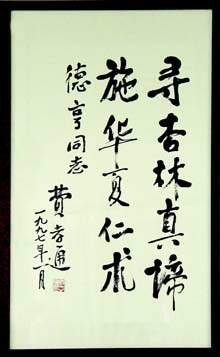 寻杏林真谛
施华夏仁术
德亨同志
费孝通
一九九七年八月